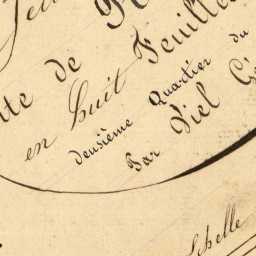 tte de
en huit Feuille
deuxième Quartier du
Par Viel
chelle